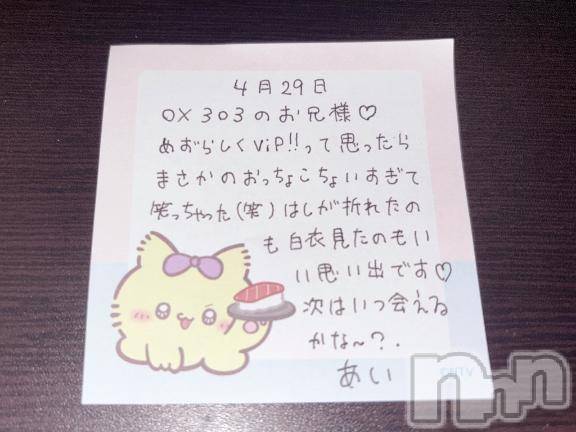 4月29日
OX 303のお兄様♡
めずらしくViP!!って思ったら
まさかのおっちょこちょいすぎて
笑っちゃった(笑)はしが折れたの
も白衣見たのもい
い思い出です♡
次はいつ会える
かな〜?.
あい
©NTV
nnn